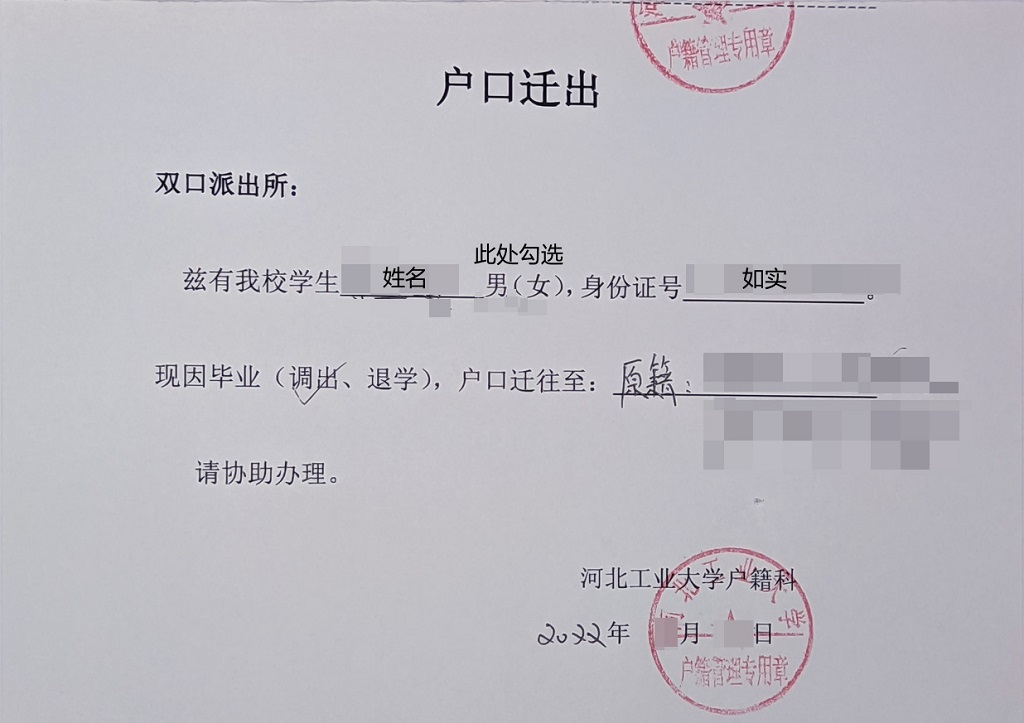 户籍管理专用章
户口迁出
双口派出所：
此处勾选
兹有我校学生 姓名 男（女），身份证号 如实 。
现因毕业（调出、退学），户口迁往至：原籍：
请协助办理。
河北工业大学户籍科
2022年 月 日
河北工业大学
户籍管理专用章